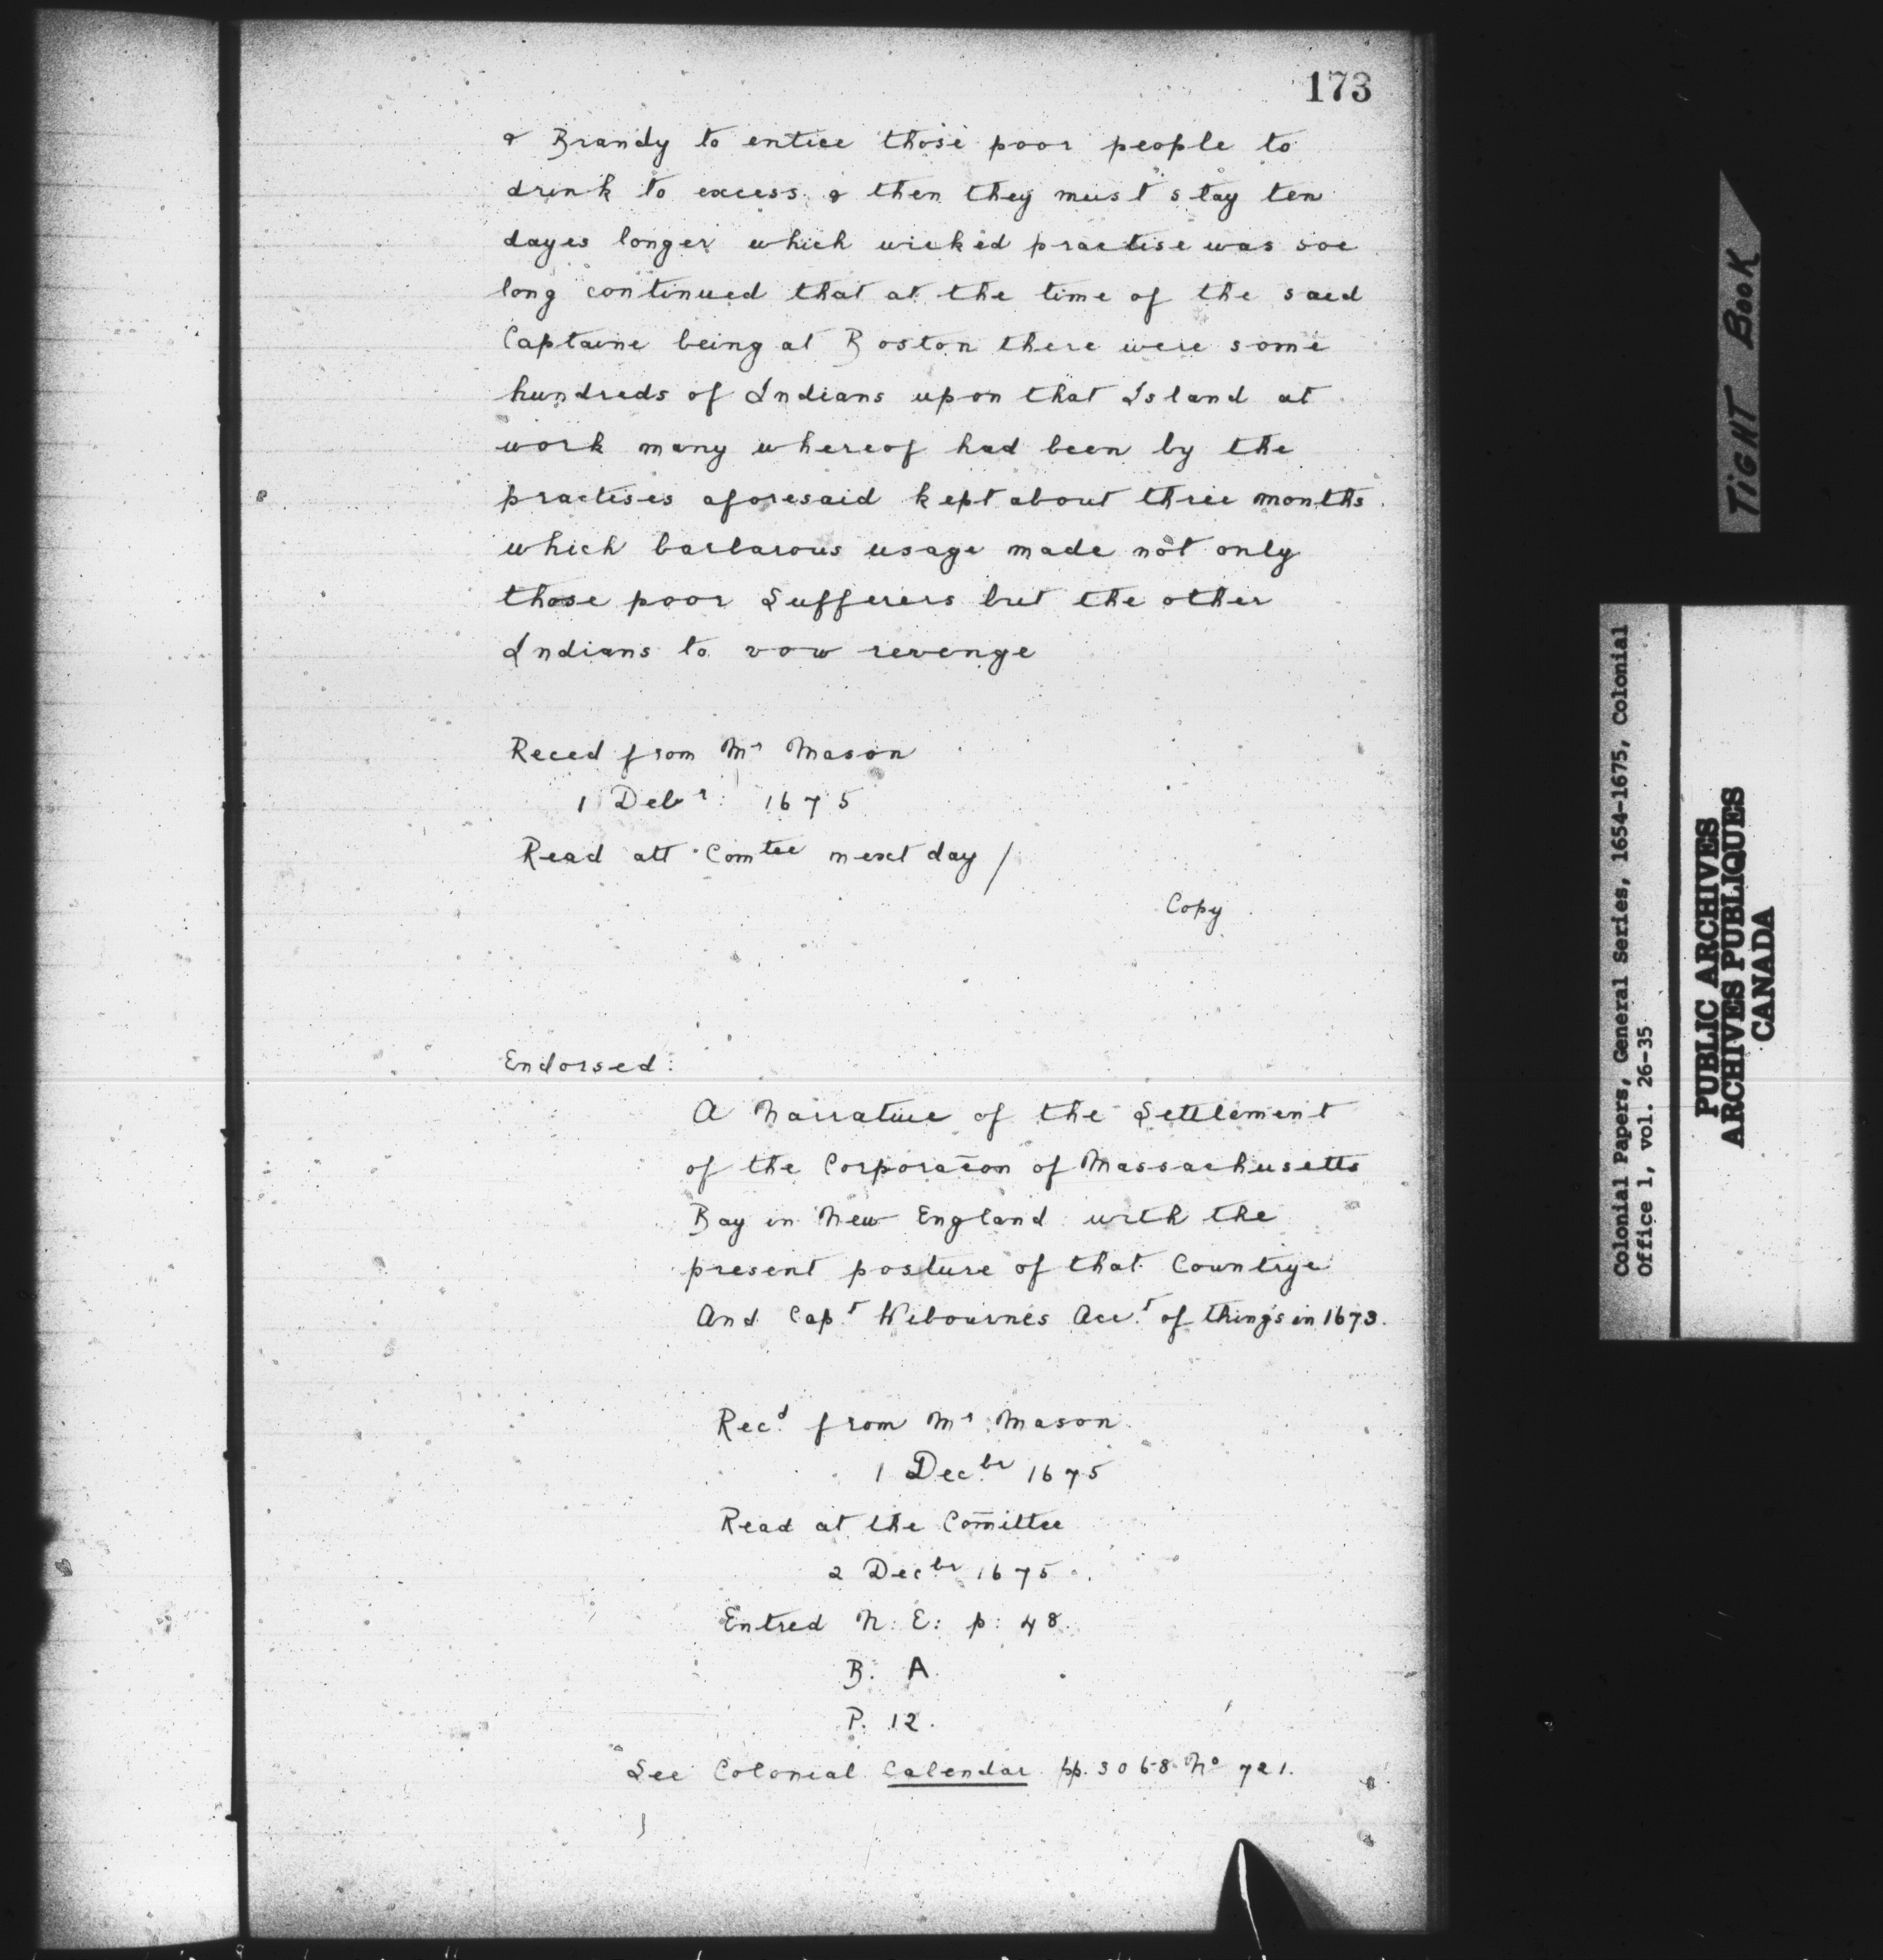 173
& Brandy to entice those poor people to
drink to excess & then they must stay ten
dayes longer which wicked practise was soe
long continued that at the time of the said
Captaine being at Boston there were some
hundreds of Indians upon that Island at
work many whereof had been by the
practises aforesaid kept about three months.
which barbarous usage made not only
those poor Sufferers but the other
Indians to vow revenge
Reced from Mr Mason
1 Debr: 1675
Read att Comtee next day /
Copy
Endorsed:
A Narrative of the Settlement
of the Corporacon of Massachusetts
Bay in New England with the
present posture of that Countrye
And Capt Wibournes Acct of things in 1673.
Recd from Mr Mason.
1 Decbr 1675
Read at the Comittee
2 Decbr 1675.
Entred N: E: p: 48.
B. A.
P. 12.
See Colonial Calendar pp. 306-8 No 721.
TIGHT BOOK
Colonial Papers, General Series, 1654-1675, Colonial
Office 1, vol. 26-35
PUBLIC ARCHIVES
ARCHIVES PUBLIQUES
CANADA